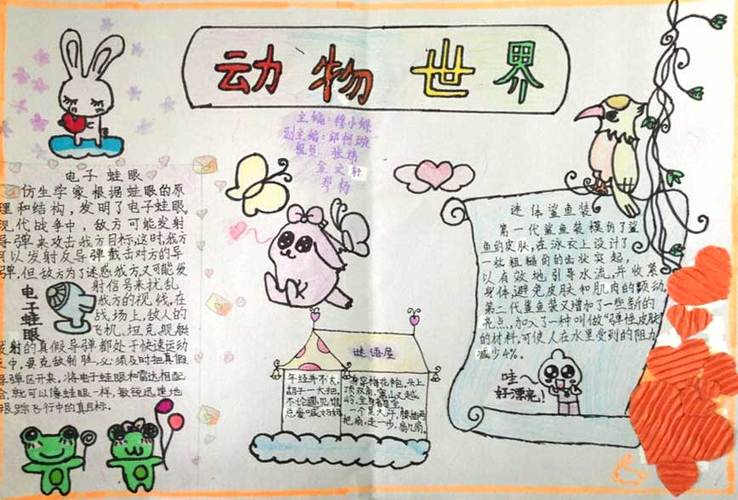 动物世界
主编:穆小蝶
副主编:邱柯璇
组员:张炜
金文轩
郑杨
电子蛙眼
仿生学家根据蛙眼的原
理和结构,发明了电子蛙眼。
现代战争中,敌方可能发射
导弹来攻击我方目标,这时,我方
可以发射反导弹截击对方的导
弹,但敌方为了迷惑我方,又可能发
射信号来扰乱
我方的视线,在
战场上,敌人的
飞机、坦克、舰艇
发射的真假导弹都处于快速运动
之中,要克敌制胜,必须及时把真假
导弹区开来,将电子蛙眼和雷达相配
合,就可以像蛙眼一样,敏锐迅速地
跟踪飞行中的真目标。
电子蛙眼
谜语屋
年纪并不大,
胡子一大把,
不论遇见谁,
总爱喊妈妈
身穿梅花袍,头上
顶双角,
全身
迷体鲨鱼装
第一代鲨鱼装模仿了鲨
鱼的皮肤,在泳衣上设计了
一些粗糙的齿状突起,
以有效地引导水流,并收紧
身体,避免皮肤和肌肉的颤动。
第二代鲨鱼装又增加了一些新的
亮点,加入了一种叫做“弹性皮肤”
的材料,可使人在水里受到的阻力
减少4%。
哇
好漂亮!